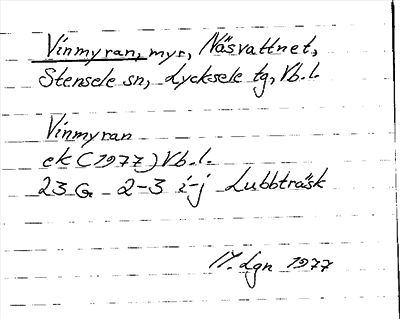 Vinmyran, myr, Näsvattnet,
Stensele sn, Lycksele tg, Vb. l.
Vinmyran
ek (1977) Vb. l.
23 G 2-3 i-j Lubbträsk
17. Lgn 1977